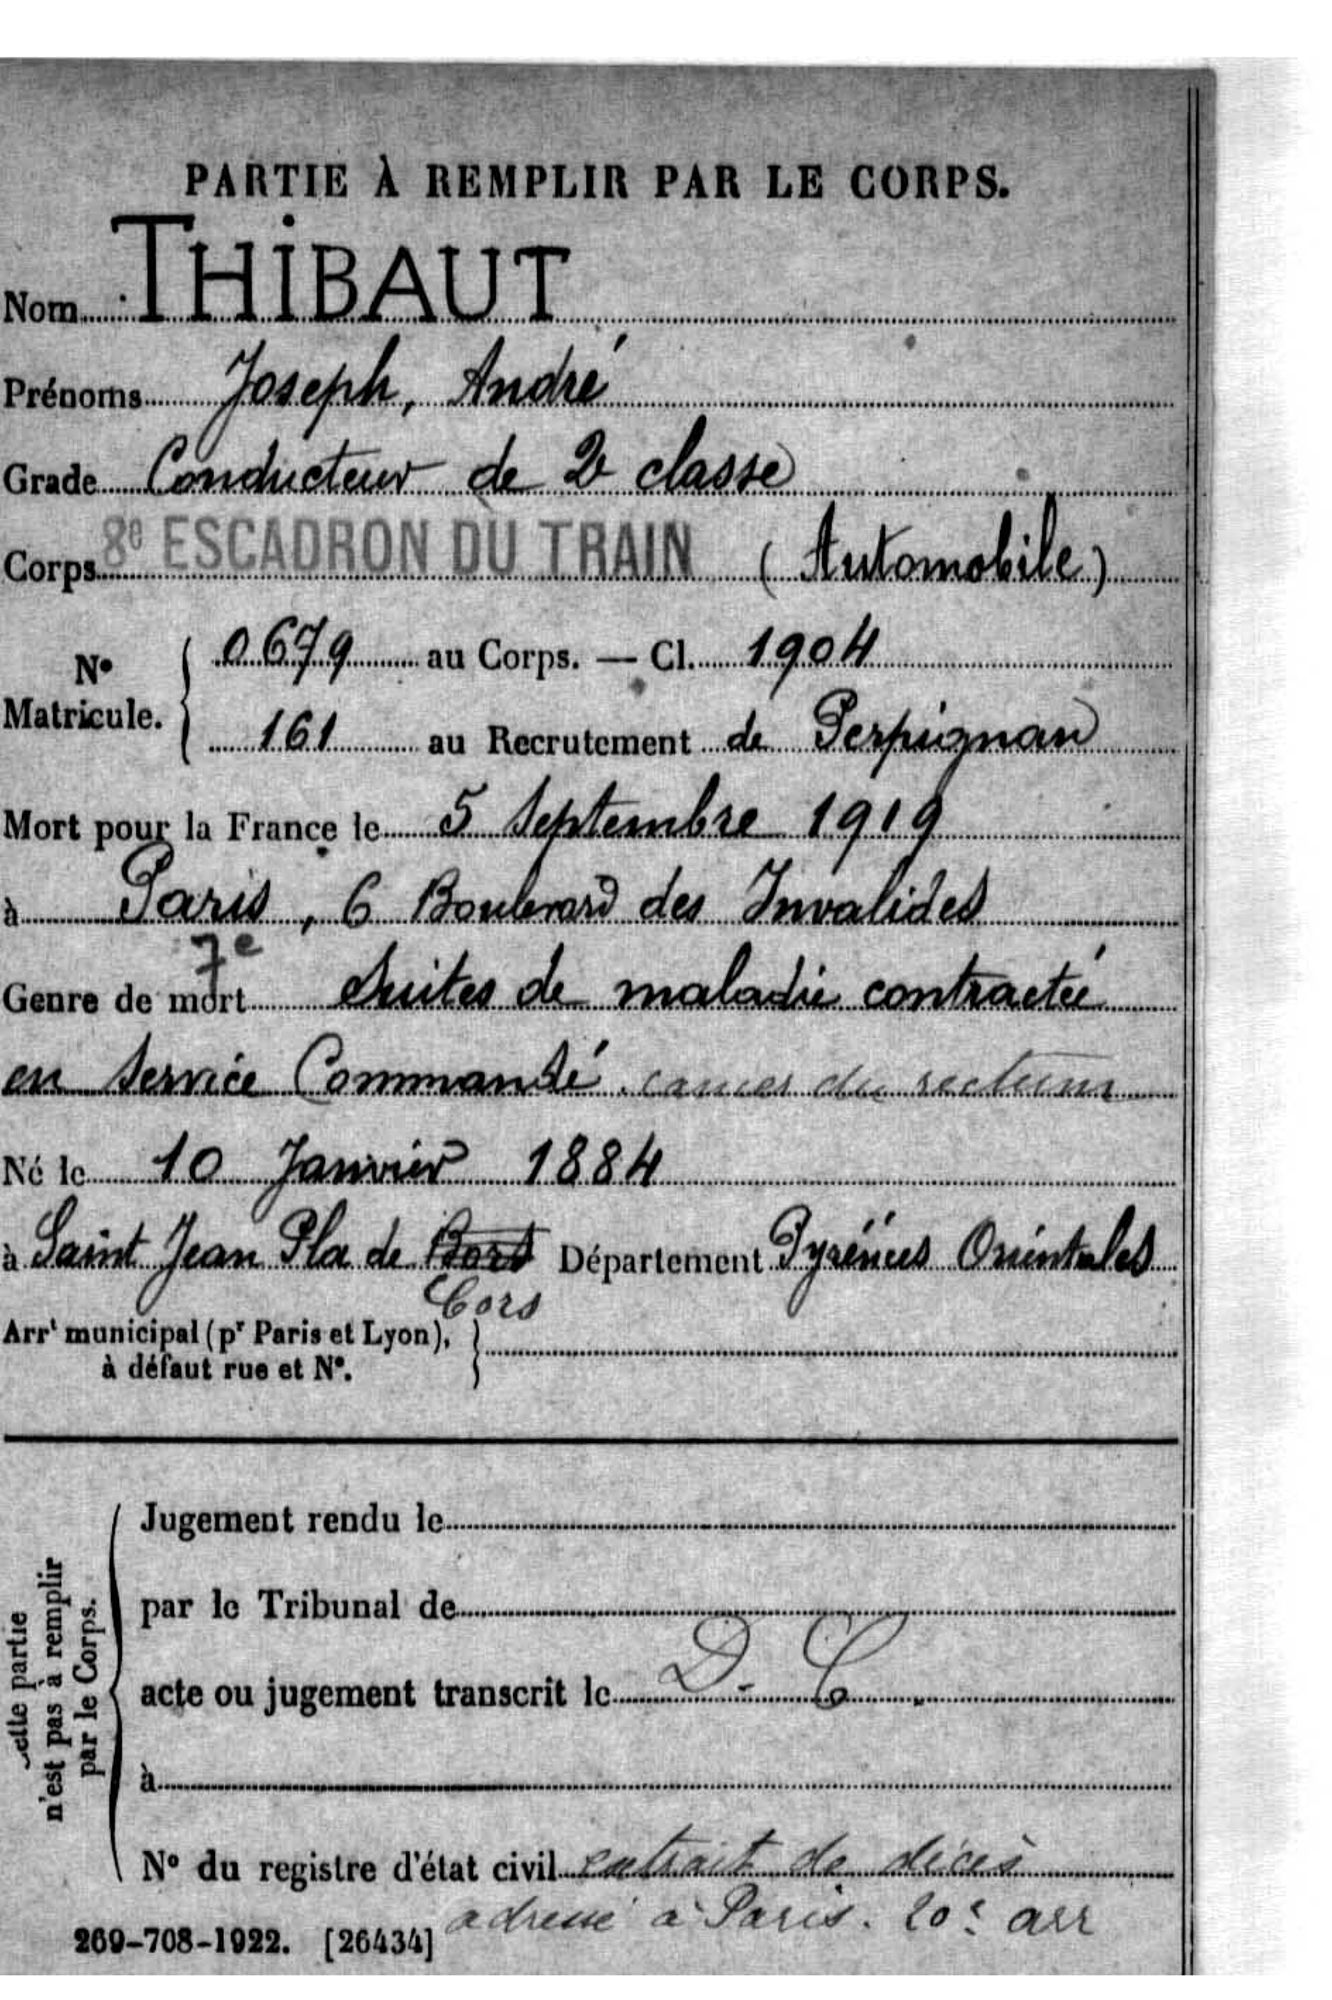 PARTIE À REMPLIR PAR LE CORPS.
Nom THIBAUT
Prénoms Joseph, André
Grade Conducteur de 2e classe
Corps 8e ESCADRON DU TRAIN (Automobile)
No Matricule. { 0679 au Corps. — Cl. 1904
161 au Recrutement de Perpignan
Mort pour la France le 5 Septembre 1919
à Paris, 6 Boulevard des Invalides
7e
Genre de mort Suites de maladie contractée
en Service Commandé. cancer du rectum
Né le 10 Janvier 1884
à Saint Jean Pla de Bors Département Pyrénées Orientales
Cors
Arrt municipal (pr Paris et Lyon), }
à défaut rue et No.
Cette partie
n'est pas à remplir
par le Corps.
Jugement rendu le
par le Tribunal de
acte ou jugement transcrit le D. C.
à
No du registre d'état civil extrait de décès
adressé à Paris. 20e arr
269-708-1922. [26434]